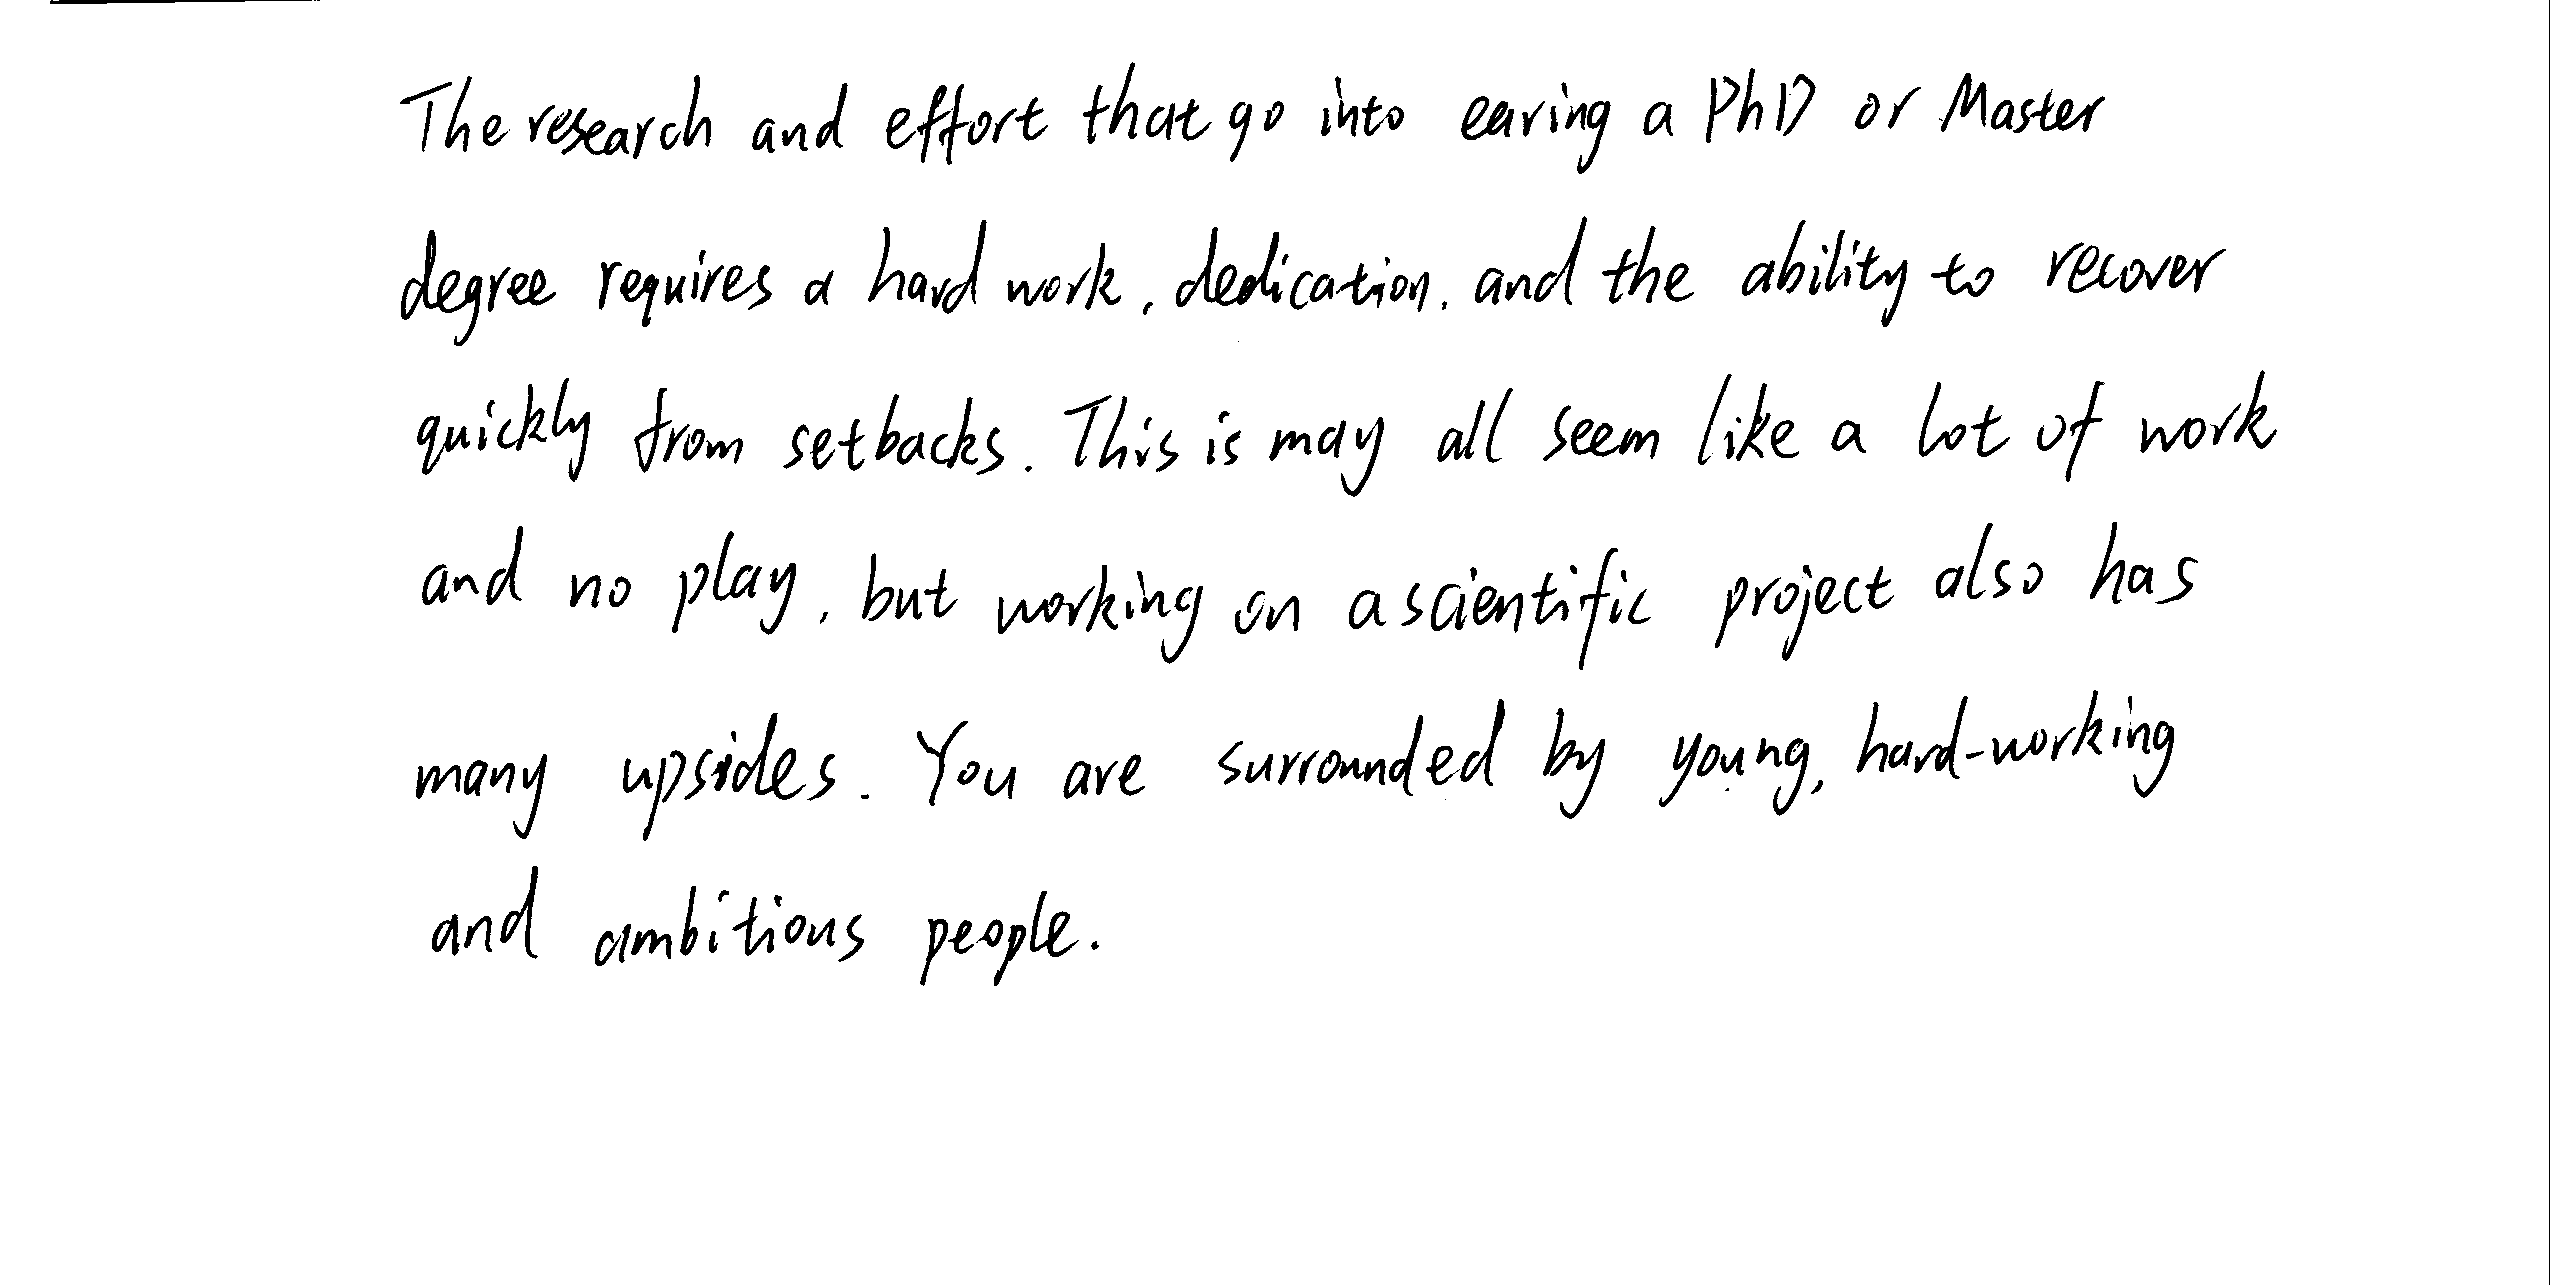 The research and effort that go into earing a PhD or Master
degree requires a hard work, dedication, and the ability to recover
quickly from setbacks. This is may all seem like a lot of work
and no play, but working on a scientific project also has
many upsides. You are surrounded by young, hard-working
and ambitious people.